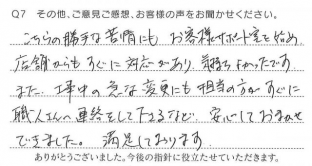 Q7 その他、ご意見ご感想、お客様の声をお聞かせください。
こちらの勝手な苦情にも お客様サポート室を始め
店舗からもすぐに対応があり、気持ちよかったです
また、工事中の急な変更にも担当の方がすぐに
職人さんへ連絡をして下さるなど、安心しておまかせ
できました。満足しております
ありがとうございました。今後の指針に役立たせていただきます。